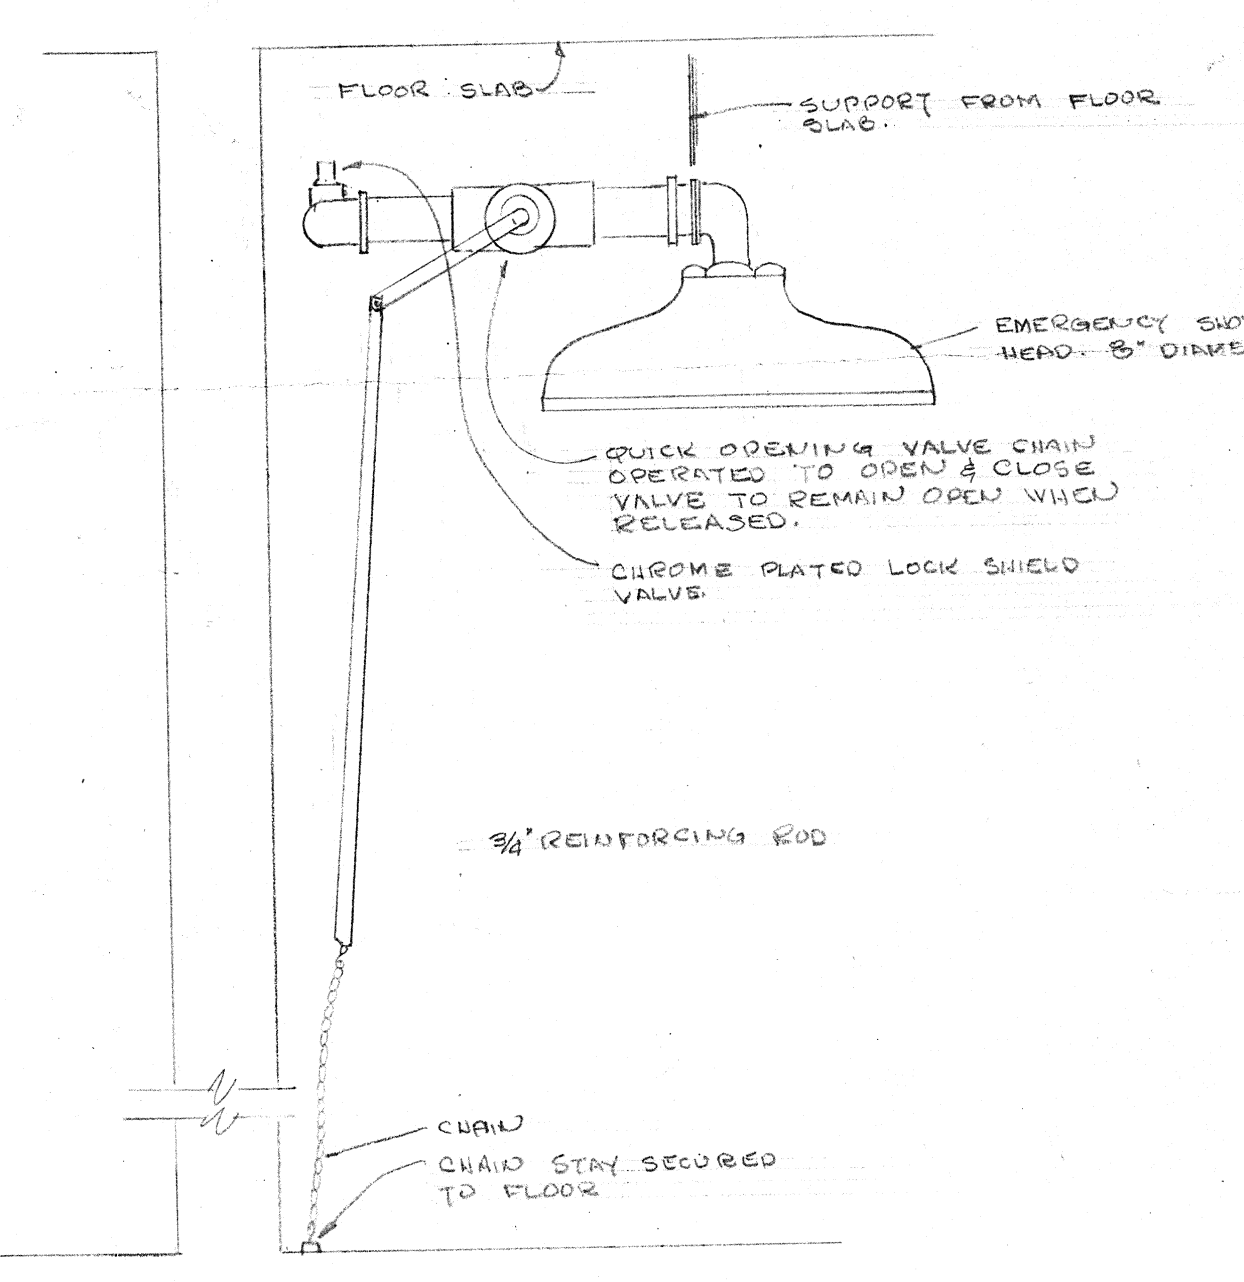 FLOOR SLAB
SUPPORT FROM FLOOR
SLAB.
EMERGENCY
HEAD. 8"
QUICK OPENING VALVE CHAIN
OPERATED TO OPEN & CLOSE
VALVE TO REMAIN OPEN WHEN
RELEASED.
CHROME PLATED LOCK SHIELD
VALVE.
3/4" REINFORCING ROD
CHAIN
CHAIN STAY SECURED
TO FLOOR